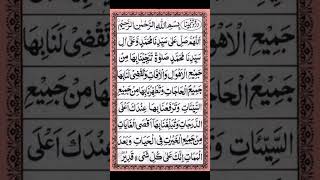 درود تنجینا بِسْمِ اللهِ الرَّحْمٰنِ الرَّحِيْمِ
اَللّٰهُمَّ صَلِّ عَلٰى سَيِّدِنَا مُحَمَّدٍ وَّعَلٰى اٰلِ
سَيِّدِنَا مُحَمَّدٍ صَلٰوةً تُنَجِّيْنَا بِهَا مِنْ
جَمِيْعِ الْاَهْوَالِ وَالْاٰفَاتِ وَتَقْضِىْ لَنَا بِهَا
جَمِيْعَ الْحَاجَاتِ وَتُطَهِّرُنَا بِهَا مِنْ جَمِيْعِ
السَّيِّئَاتِ وَتَرْفَعُنَا بِهَا عِنْدَكَ اَعْلَى
الدَّرَجَاتِ وَتُبَلِّغُنَا بِهَا اَقْصَى الْغَايَاتِ
مِنْ جَمِيْعِ الْخَيْرَاتِ فِى الْحَيَاتِ وَبَعْدَ
الْمَمَاتِ اِنَّكَ عَلٰى كُلِّ شَىْءٍ قَدِيْرٌ